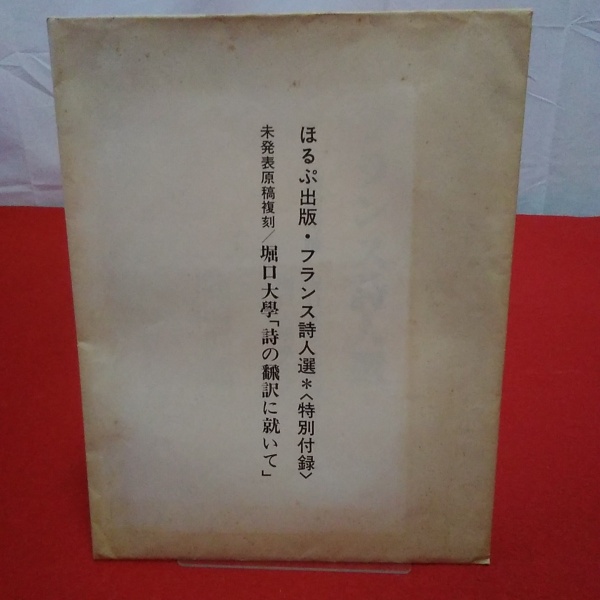 ほるぷ出版・フランス詩人選＊〈特別付録〉
未発表原稿複刻／堀口大學「詩の飜訳に就いて」